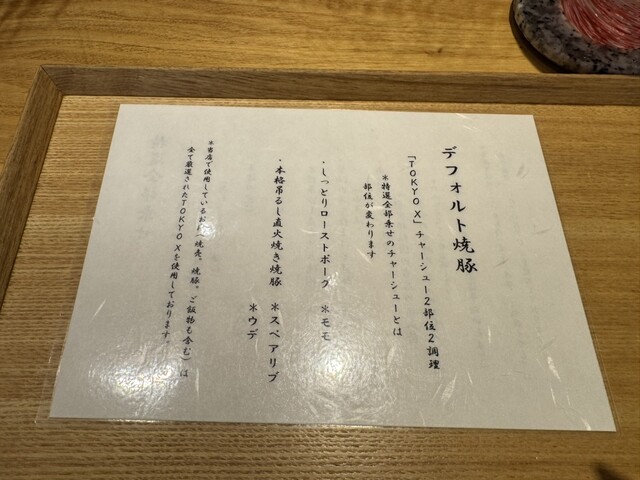 デフォルト焼豚
「TOKYO X」チャーシュー2部位2調理
＊特選全部乗せのチャーシューとは
部位が変わります
・しっとりローストポーク ＊モモ
・本格吊るし直火焼き焼豚 ＊スペアリブ
＊ウデ
＊当店で使用しているお肉（焼売、焼豚、ご飯物も含む）は
全て厳選されたTOKYO Xを使用しております。